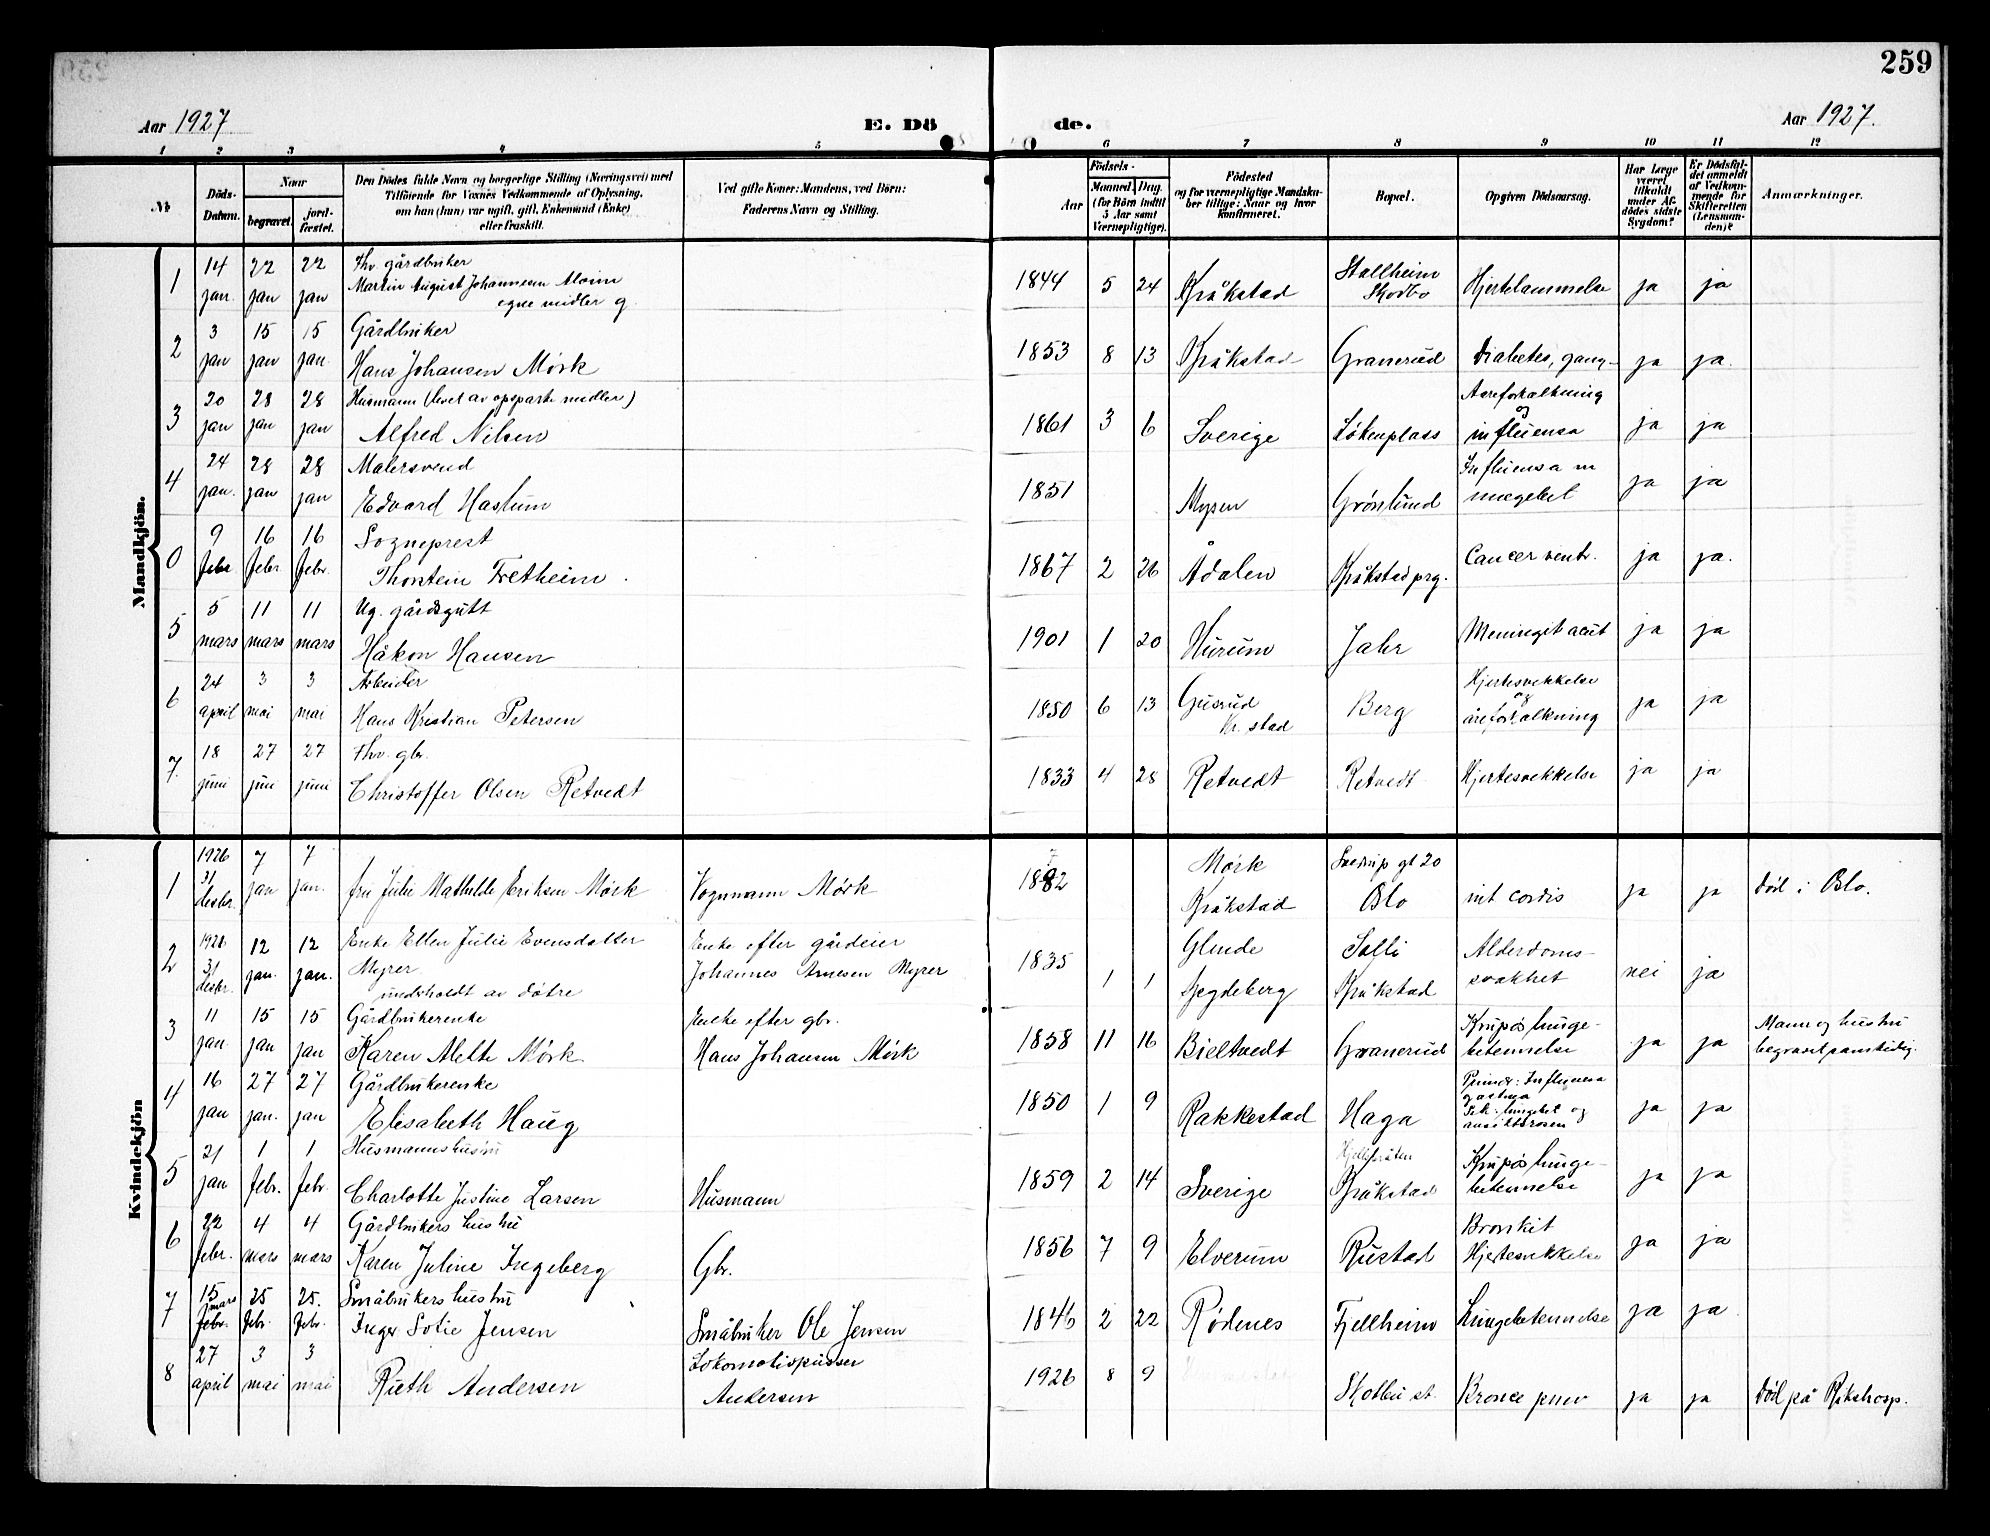 259
Aar 1927
E. Dö
de.
Aar 1927.
1 2 3 4 5 6 7 8 9 10 11 12
№
Döds-
Datum.
Naar
begravet.
jord-
fæstet.
Den Dödes fulde Navn og borgerlige Stilling (Næringsvei) med
Tilföiende for Voxnes Vedkommende af Oplysning,
om han (hun) var ugift, gift, Enkemand (Enke)
eller fraskilt.
Ved gifte Koner: Mandens, ved Börn:
Faderens Navn og Stilling.
Födsels-
Aar
Maaned Dag.
(for Börn indtil
5 Aar samt
Værnepligtige).
Födested
og for værnepligtige Mandska-
ber tillige: Naar og hvor
konfirmeret.
Bopæl.
Opgiven Dödsaarsag.
Har Læge
været
tilkaldt
under Af-
dödes sidste
Sygdom?
Er Dödsfal-
det anmeldt
af Vedkom-
mende for
Skifteretten
(Lensman-
den)?
Anmærkninger.
Mandkjön.
1 14 jan. 22 jan 22 jan Fhv. gårdbruker
Martin August Johannesen
egne midler g 1844 5 24 Kråkstad Stallheim
Skodbo Hjertelammelse ja ja
2 3 jan 15 jan 15 jan. Gårdbruker
Hans Johansen Mørk 1853 8 13 Kråkstad Granerud Diabetes, gang- ja ja.
3 20 jan 28 jan 28 jan Husmann (levet av opsparte midler)
Alfred Nilsen 1861 3 6 Sverige Løkenplass Aareforkalkning
og
influensa ja ja
4 24 jan. 28 jan 28 jan Malersvend
Edvard Haslum 1851 Mysen Grønlund Influensa m
ja ja
0 9 febr 16 febr 16 febr. Sogneprest
Thorstein Fretheim. 1867 2 26 Ådalen Kråkstad prg. Cancer ventr. ja ja.
5 5 mars 11 mars 11 mars Ug. gårdsgutt
Håkon Hansen 1901 1 20 Hurum Jahr Meningit acut ja ja
6 24 april 3 mai 3 mai Arbeider
Hans Kristian Petersen 1850 6 13
Kr. stad Berg Hjertesvekkelse
og
åreforkalkning ja ja
7. 18 juni 27 juni 27 juni Fhv. gbr.
Christoffer Olsen Retvedt 1833 4 28 Retvedt Retvedt Hjertesvekkelse ja ja
Kvindekjön
1 1926 31 desbr. 7 jan 7 jan. fru Julie Mathilde Eriksen Mørk Vognmann Mørk Mørk
Kråkstad Sverdrup gt 20
Oslo vit cordis ja ja død i Oslo.
2 1926 31 desbr. 12 jan. 12 jan. Enke Ellen Julie Evensdatter
Myrer
underholdt av døtre Enke efter gårdeier
Johannes Arnesen Myrer 1835 1 1 Glende
Segdeberg Solli
Kråkstad Alderdoms-
svakhet nei ja
3 11 jan. 15 jan 15 jan Gårdbrukerenke
Karen Alette Mørk Enke efter gbr.
Hans Johansen Mørk 1858 11 16 Bieltvedt Granerud Krupøs lunge-
betennelse ja ja Mann og hustru
begravet samtidig.
4 16 jan 27 jan. 27 jan Gårdbrukerenke
Elisabeth Haug 1850 1 9 Rakkestad Haga Primær: Influensa
og
ansiktsrosen ja ja
5 21 jan 1 febr. 1 febr. Husmannshustru
Charlotte Justine Larsen Husmann 1859 2 14 Sverige
Kråkstad Krupøs lunge-
betennelse ja ja
6 22 febr. 4 mars 4 mars Gårdbrukers hustru
Karen Juline Ingeberg Gbr. 1856 7 9 Elverum Rustad Bronkit
Hjertesvekkelse ja ja
7 15 mars febr. 25 febr. 25. febr. Småbrukers hustru
Inger Sofie Jensen Småbruker Ole Jensen 1846 2 22 Rødenes Fjellheim Lungebetennelse ja ja
8 27 april 3 mai 3 mai Ruth Andersen Lokomotivpusser
Andersen 1926 8 9 Skotbu st. Bronce pnev ja ja Død på Rikshosp.